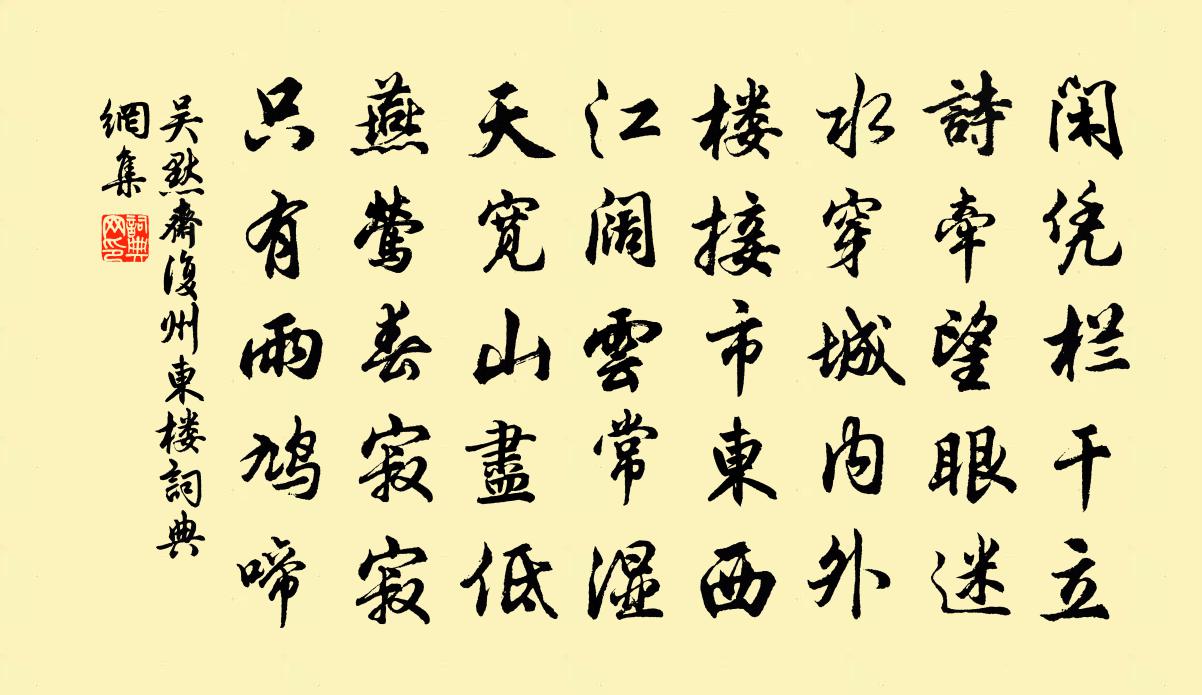 闲凭栏干立
詩牽望眼迷
水穿城内外
楼接市東西
江阔雲常湿
天宽山盡低
燕莺春寂寂
只有雨鳩啼
吴默齋復州東楼詞典
網集
詞典
网印